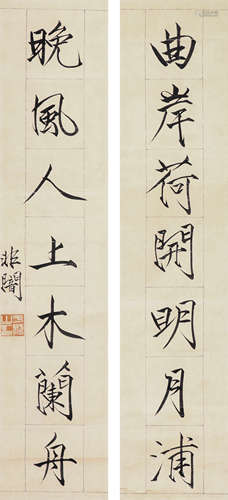 曲岸荷開明月浦
晚風人上木蘭舟
非闇